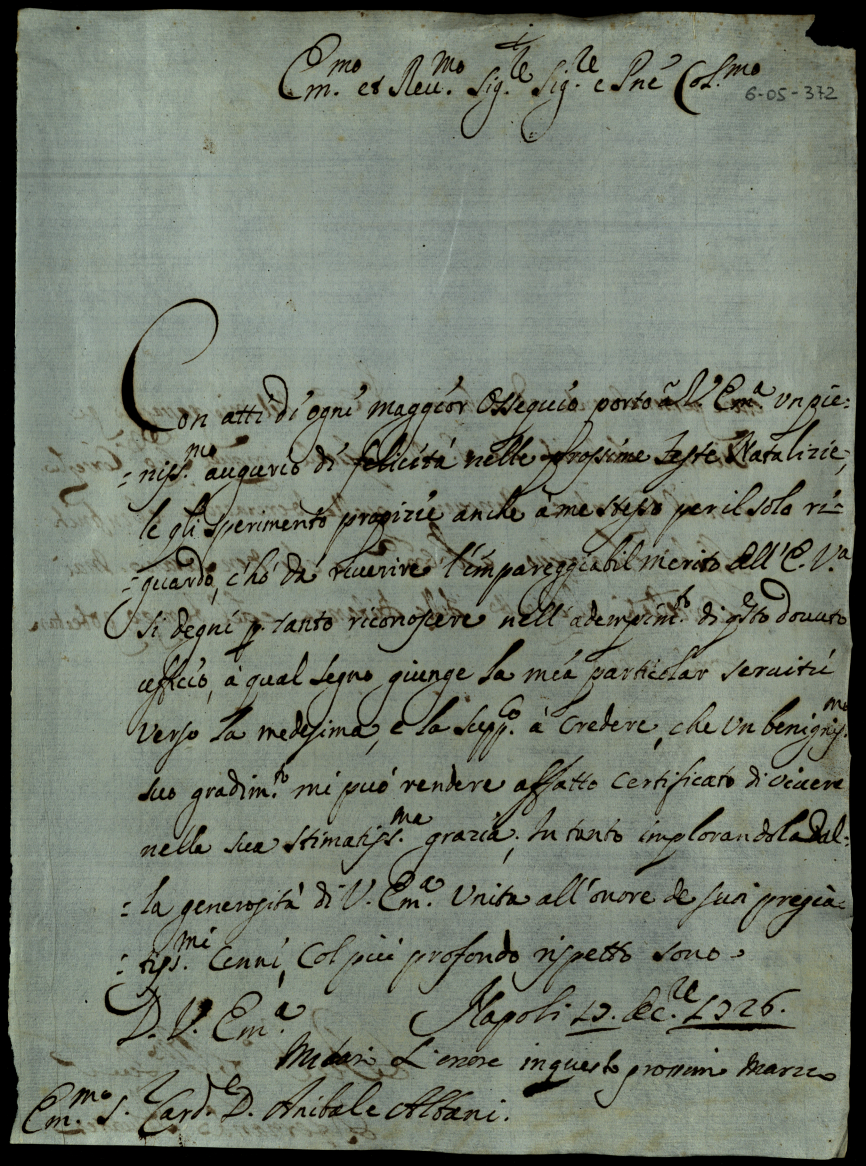 Em.mo et Reu.mo Sig.re Sig.re e Pne Col.mo
6-05-372
Con atti di ogni maggior Ossequio porto à V. Em.a un pie=
=niss.mo augurio di felicità nelle prossime feste Natalizie,
le gli sperimento propizie anche à me stesso per il solo ri=
=guardo, c'hò da riuerire l'impareggiabil merito dell'E. V.a
Si degni p. tanto riconoscere nell'adempim.to di qsto douuto
ufficio, à qual segno giunge la mia particolar seruitù
verso la medesima, e la supp.co à credere, che un benigniss.mo
suo gradim.to mi può rendere affatto certificato di viuere
nella sua stimatiss.ma grazia. In tanto implorandola dal=
=la generosità di V. Em.a unita all'onore de suoi pregia=
=tiss.mi cenni, col più profondo rispetto sono
D. V. Em.a Napoli 17. Xc.re 1726.
L'onore in questo prossimo Marzo
Em.mo S.r Card.e D. Anibale Albani.